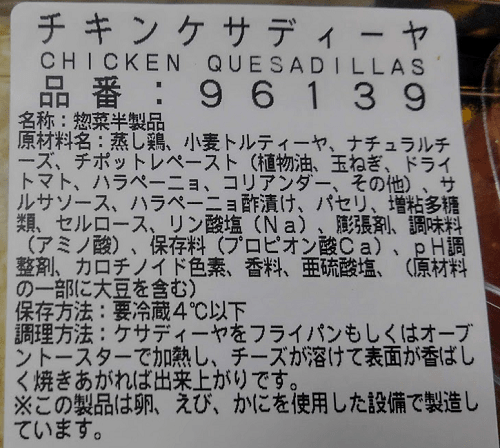 チキンケサディーヤ
CHICKEN QUESADILLAS
品番:96139
名称:惣菜半製品
原材料名:蒸し鶏、小麦トルティーヤ、ナチュラルチ
ーズ、チポットレペースト(植物油、玉ねぎ、ドライ
トマト、ハラペーニョ、コリアンダー、その他)、サ
ルサソース、ハラペーニョ酢漬け、パセリ、増粘多糖
類、セルロース、リン酸塩(Na)、膨張剤、調味料
(アミノ酸)、保存料(プロピオン酸Ca)、pH調
整剤、カロチノイド色素、香料、亜硫酸塩、(原材料
の一部に大豆を含む)
保存方法:要冷蔵4℃以下
調理方法:ケサディーヤをフライパンもしくはオーブ
ントースターで加熱し、チーズが溶けて表面が香ばし
く焼きあがれば出来上がりです。
※この製品は卵、えび、かにを使用した設備で製造し
ています。